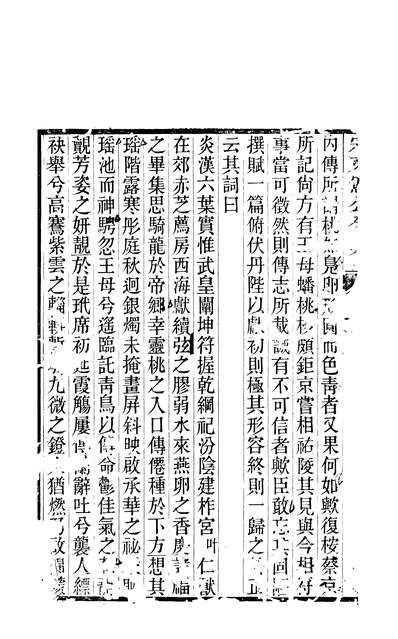 內傳所謂桃如鳧卵形圓而色靑者又果何如歟復桉蔡京
所記尙方有王母蟠桃核頗鉅京嘗相祐陵其見與今相符
事當可徵然則傳志所載誠有不可信者歟臣敢忘其固陋
撰賦一篇俯伏丹陛以獻初則極其形容終則一歸之
云其詞曰
炎漢六葉實惟武皇闡坤符握乾綱祀汾陰建柞宮叶仁獸
在郊赤芝薦房西海獻續弦之膠弱水來燕卵之香
之畢集思騎龍於帝鄕幸靈桃之入口傳僊種於下方想其
瑤階露寒彤庭秋迥銀燭未掩畫屏斜映啟承華之祕
瑤池而神騁忽王母兮遙臨託靑鳥以傳命鬱佳氣之
覿芳姿之妍靚於是玳席初延霞觴屢 辭吐兮蘭襲人縹
袂舉兮高騫紫雲之輧 九微之鐙 猶燃